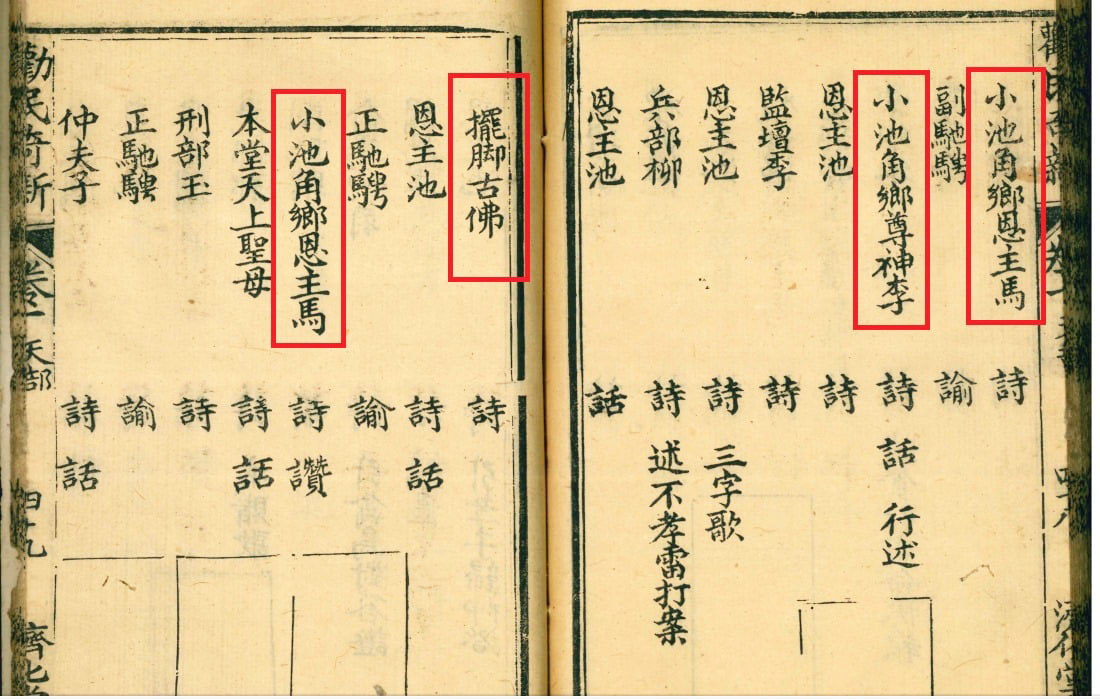 小池角鄉恩主馬 詩
副馳騁 諭
小池角鄉尊神李 詩 話 行述
恩主池 詩
監壇李 詩
恩主池 詩 三字歌
兵部柳 詩 述不孝雷打案
恩主池 話
擺脚古佛 詩
恩主池 詩 話
正馳騁 諭
小池角鄉恩主馬 詩 讚
本堂天上聖母 詩 話
刑部王 詩
正馳騁 諭
仲夫子 詩 話
勸民奇新 卷一 天部 四十九 濟化